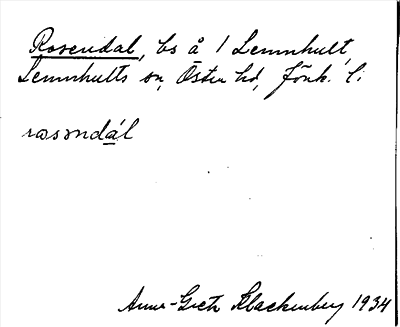 Rosendal, bs å 1 Lemnhult,
Lemnhults sn, Östra hd, Jönk. l:
rosəndál
Anna-Greta Klackenberg 1934